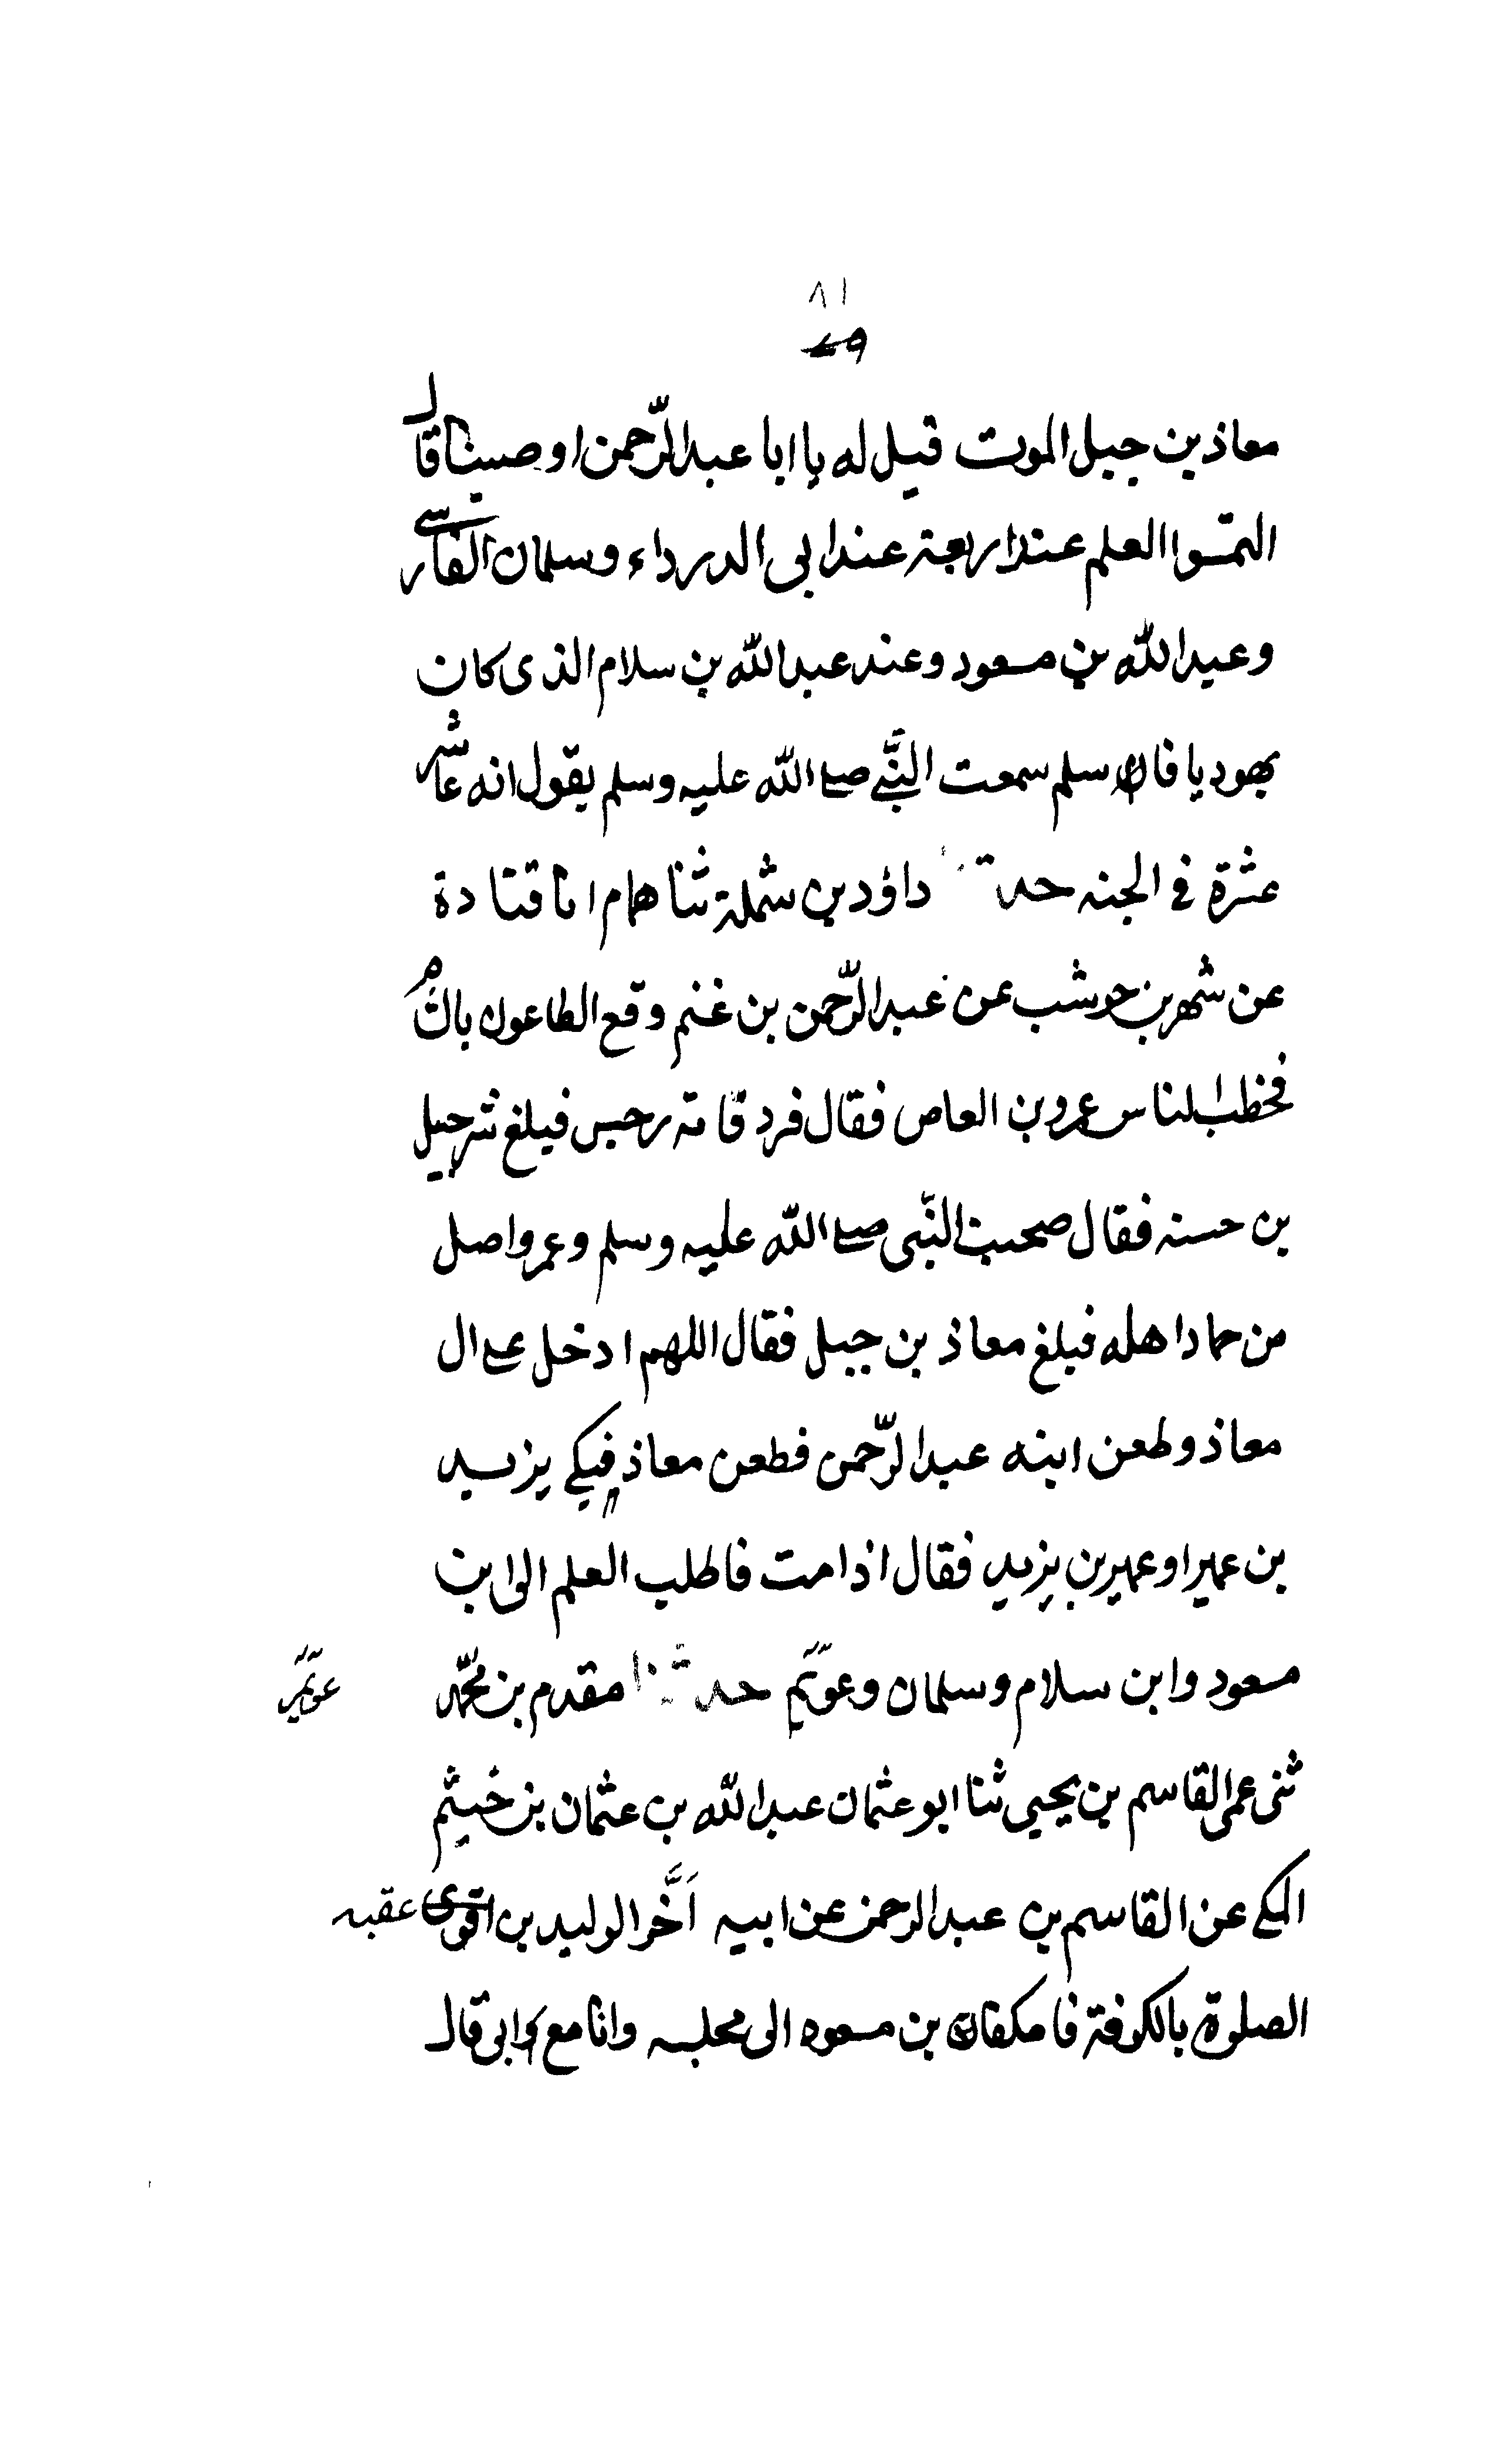 ٨١
معاذ بن جبل الموت قيل له يا ابا عبد الرّحمن اوصينا قال
التمسوا العلم عند اربعة عند ابى الدرداء وسلمان الفارسى
وعبد الله بن مسعود وعند عبد الله بن سلام الذى كان
يهوديا فاسلم سمعت النّبى صلى الله عليه وسلم يقول انه عاشر
عشرة فى الجنه داؤد بن شملة ثنا همام انا قتادة
عن شهر بن حوشب عن عبد الرّحمن بن غنم وقع الطاعون بالشام
فخطب الناس عمرو بن العاص فقال رجس فبلغ شرحبيل
بن حسنه فقال صحبت النّبى صلى الله عليه وسلم وعمرو اصل
من حمار اهله فبلغ معاذ بن جبل فقال اللهم ادخل على ال
معاذ وطعن ابنه عبد الرّحمن فطعن معاذ فبكى يزيد
بن عمير او عمير بن يزيد فقال اذا مت فاطلب العلم الى ابن
مسعود وابن سلام وسلمان وعويمر حدثنا مقدم بن محمّد عويمر
ثنى عمى القاسم بن يحيى ثنا ابو عثمان عبد الله بن عثمان بن خيثم
المكى عن القاسم بن عبد الرحمن عن ابيه اَخَّر الوليد بن عقبه
الصلوة بالكوفة بن مسعود الى مجلسه وانا مع ابى قال